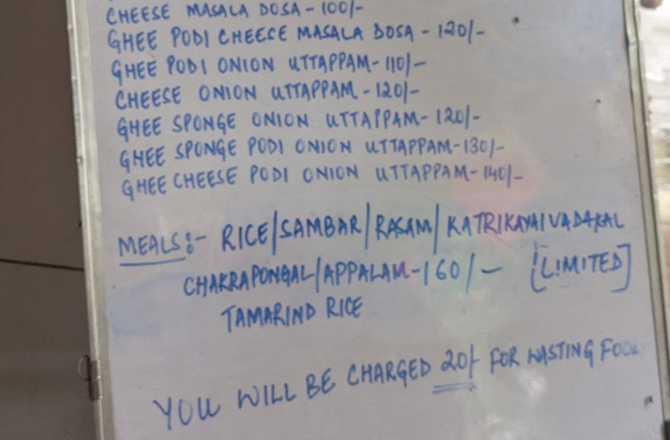 CHEESE MASALA DOSA - 100/-
GHEE PODI CHEESE MASALA DOSA - 120/-
GHEE PODI ONION UTTAPPAM - 110/-
CHEESE ONION UTTAPPAM - 120/-
GHEE SPONGE ONION UTTAPPAM - 120/-
GHEE SPONGE PODI ONION UTTAPPAM - 130/-
GHEE CHEESE PODI ONION UTTAPPAM - 140/-
MEALS:- RICE/SAMBAR/RASAM/KATRIKAYAIVADAKAL
CHAKRAPONGAL/APPALAM-160/- [LIMITED]
TAMARIND RICE
YOU WILL BE CHARGED 20/- FOR WASTING FOOD